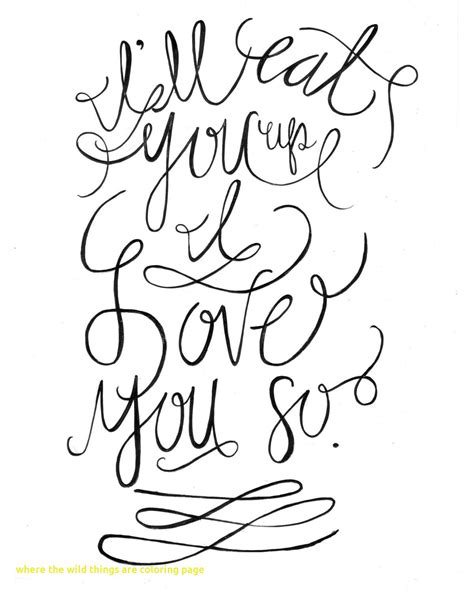 I'll eat
you up
I
Love
you so.
where the wild things are coloring page